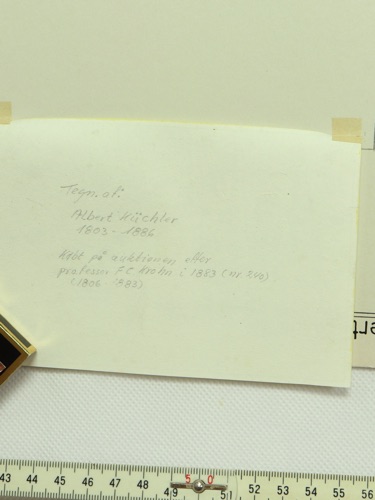 Tegn. af:
Albert Küchler
1803 - 1886
Købt på auktionen efter
professor F C Krohn i 1883 (nr. 242)
(1806 - 1883)
43 44 45 46 47 48 49 50 51 52 53 54 55 56